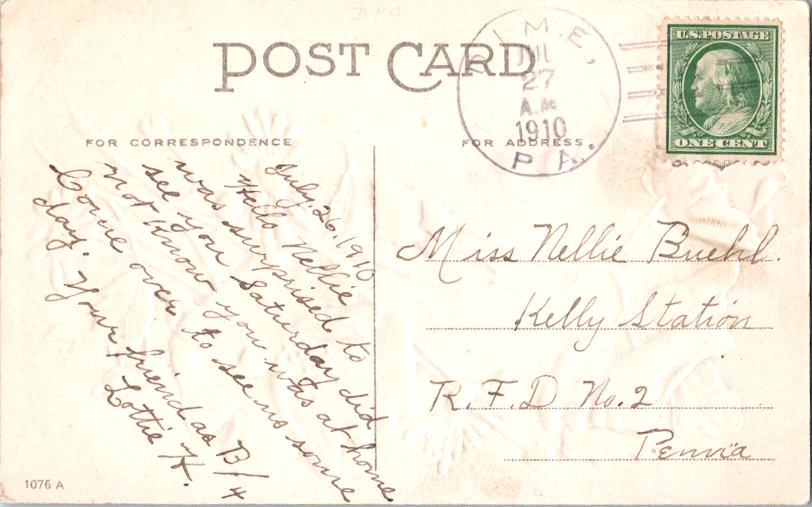 POST CARD
FOR CORRESPONDENCE
FOR ADDRESS
JUL
27
A.M.
1910
PA.
U.S. POSTAGE
ONE CENT
July. 26, 1910
Hello Nellie
was surprised to
see you Saturday did
not know you was at home
Come over to see us some
day. Your friend as B/4
Lottie H.
Miss Nellie Buehl.
Kelly Station
R.F.D No. 2
Penvia
1076 A